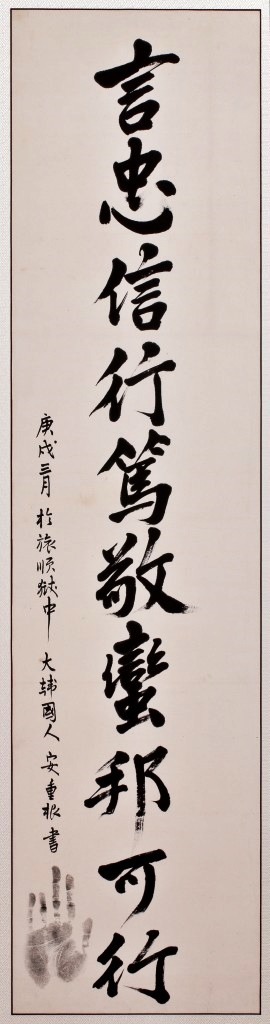 言忠信行篤敬蠻邦可行
庚戌三月 於旅順獄中 大韓國人 安重根 書